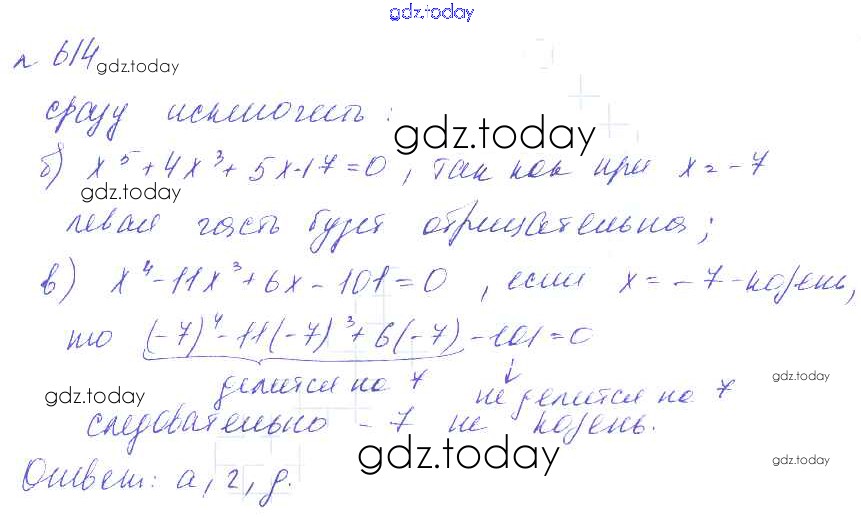 gdz.today
№ 614
gdz.today
сразу исключить:
gdz.today
б) x⁵ + 4x³ + 5x - 17 = 0, так как при x = -7
gdz.today
левая часть будет отрицательна;
в) x⁴ - 11x³ + 6x - 101 = 0, если x = -7 - корень,
то (-7)⁴ - 11(-7)³ + 6(-7) - 101 = 0
делится на 7 не делится на 7
gdz.today
gdz.today
следовательно -7 не корень.
gdz.today
gdz.today
Ответ: а, г, д.